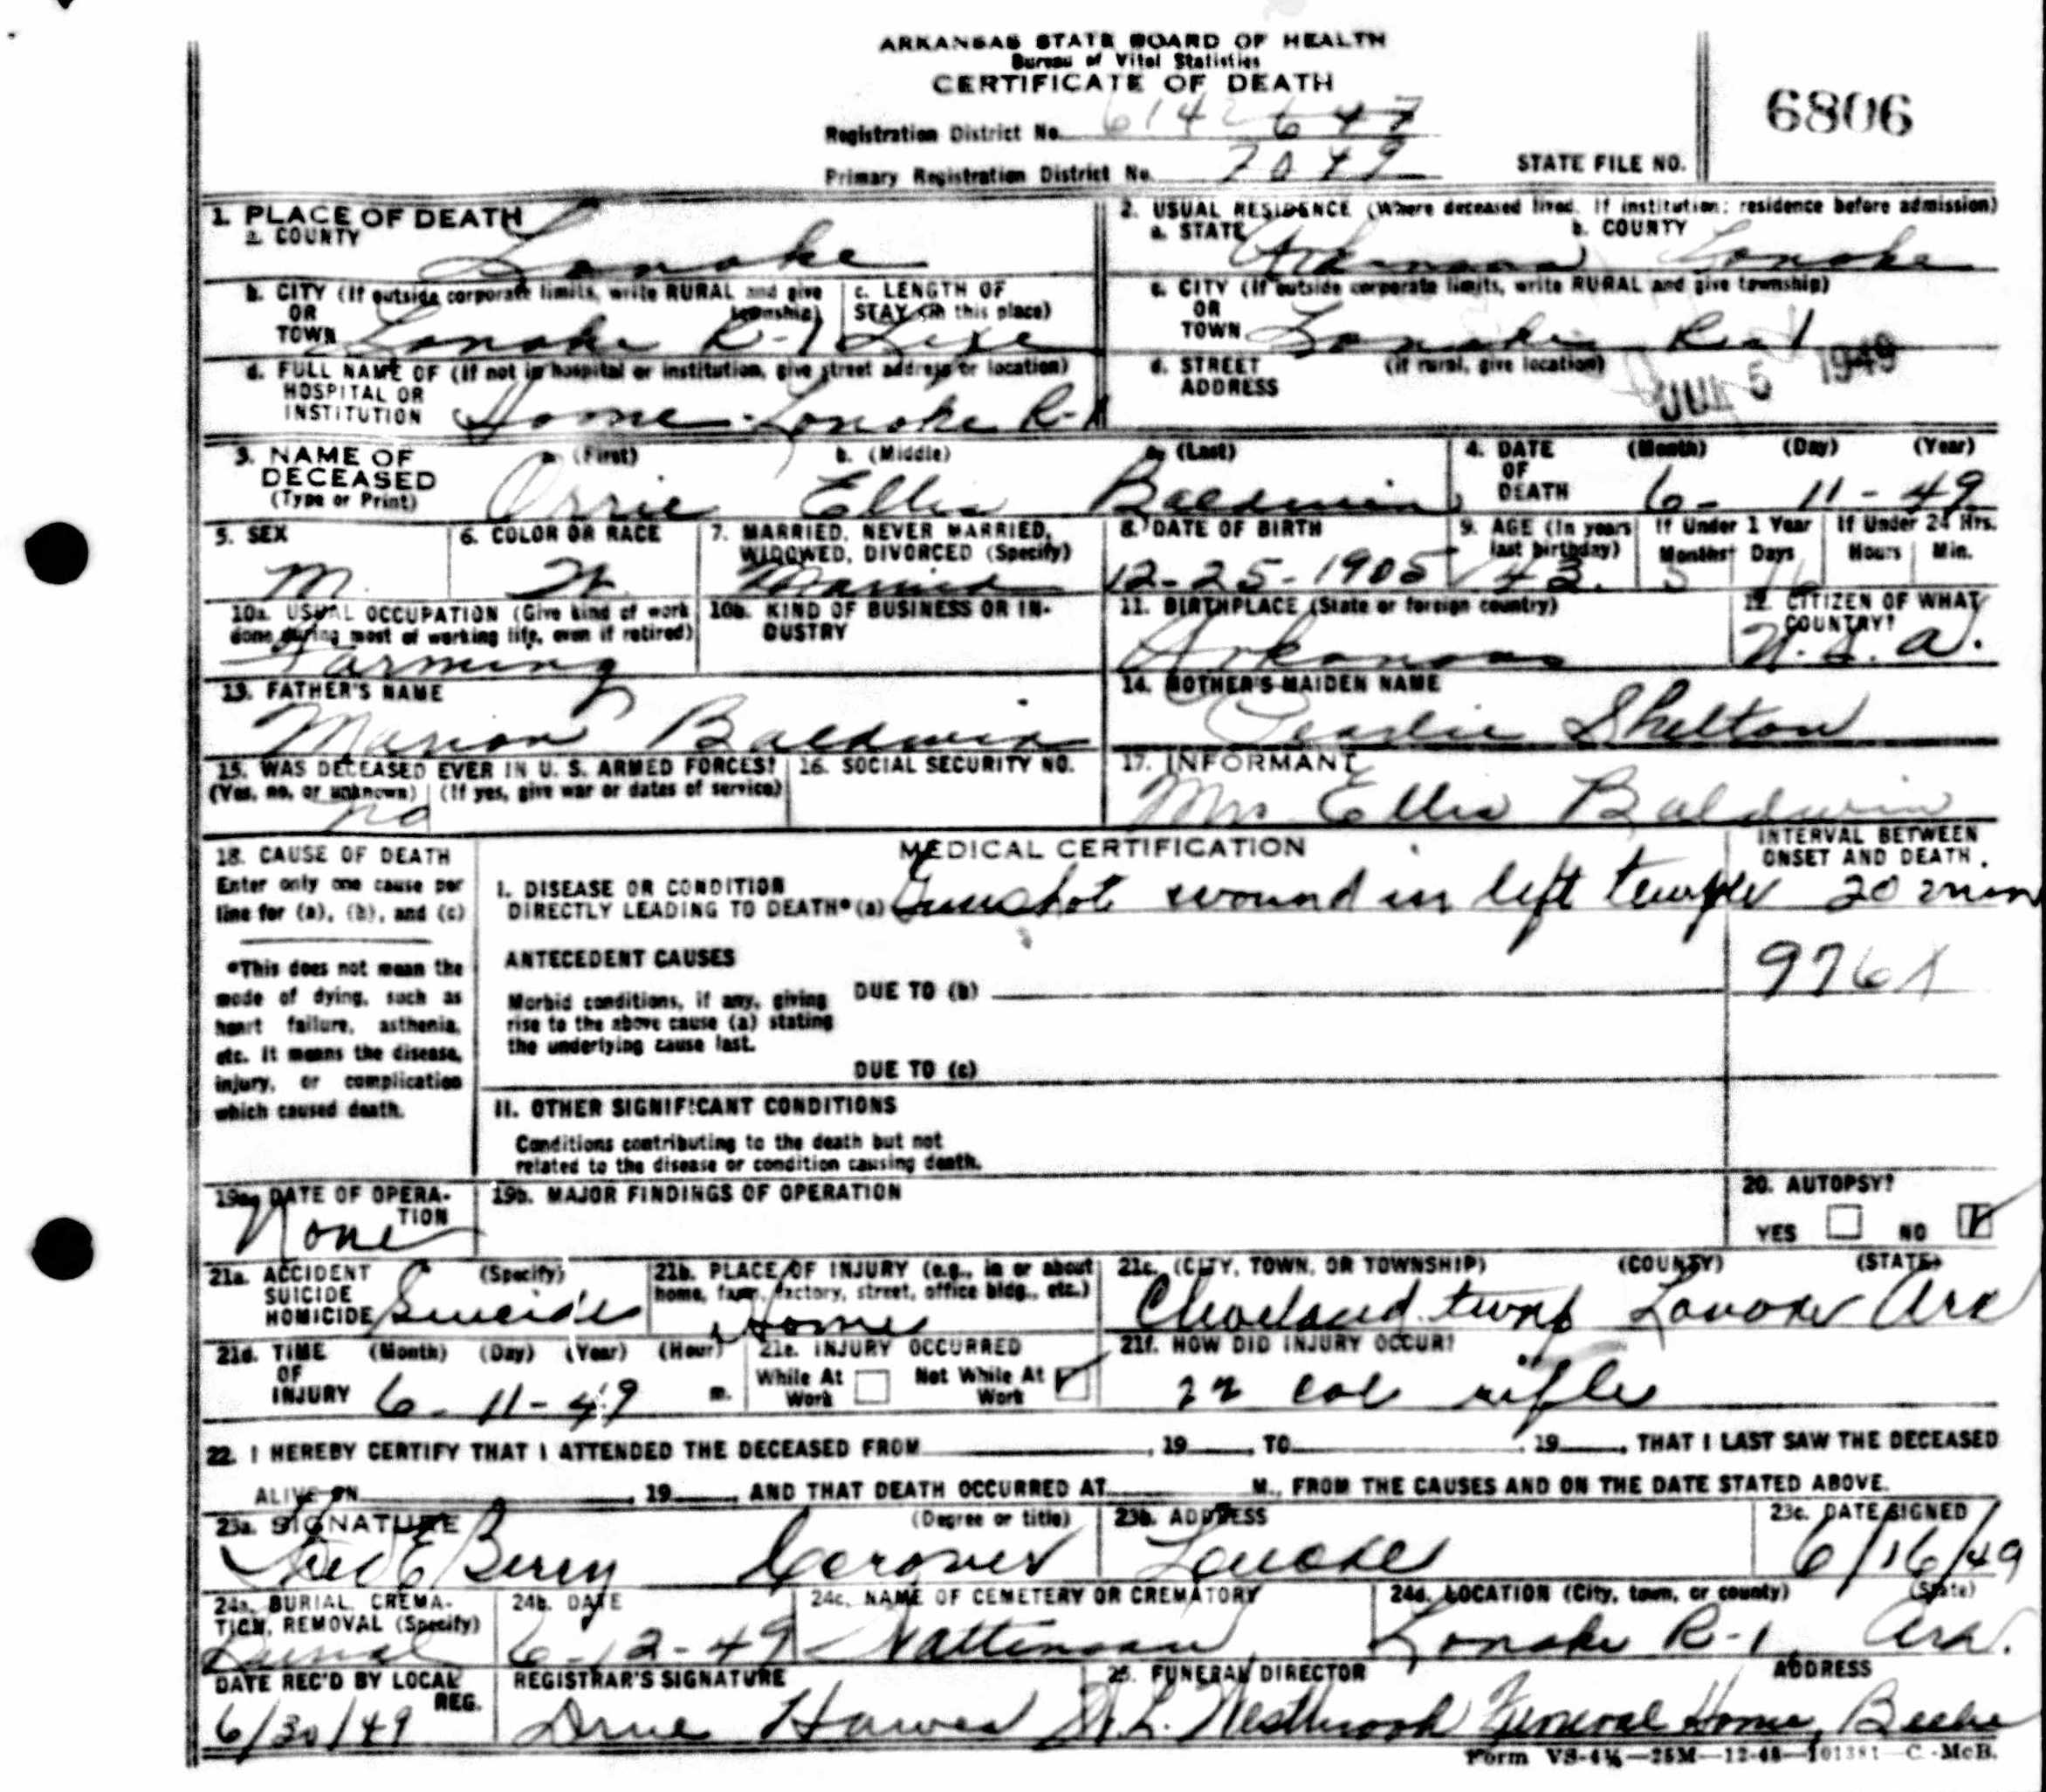 ARKANSAS STATE BOARD OF HEALTH
Bureau of Vital Statistics
CERTIFICATE OF DEATH
6806
Registration District No. 647
Primary Registration District No. 7049
STATE FILE NO.
1. PLACE OF DEATH
a. COUNTY Lonoke
2. USUAL RESIDENCE (Where deceased lived. If institution: residence before admission)
a. STATE Arkansas b. COUNTY Lonoke
b. CITY (If outside corporate limits, write RURAL and give township) OR TOWN Lonoke R-1
c. LENGTH OF STAY (in this place) Life
c. CITY (If outside corporate limits, write RURAL and give township) OR TOWN Lonoke R-1
d. FULL NAME OF (If not in hospital or institution, give street address or location) HOSPITAL OR INSTITUTION Home - Lonoke R-1
d. STREET ADDRESS (If rural, give location)
5 1949
3. NAME OF DECEASED (Type or Print)
a. (First) Orrie b. (Middle) Ellis c. (Last) Baldwin
4. DATE OF DEATH (Month) (Day) (Year) 6-11-49
5. SEX M.
6. COLOR OR RACE W.
7. MARRIED, NEVER MARRIED, WIDOWED, DIVORCED (Specify) Married
8. DATE OF BIRTH 12-25-1905
9. AGE (In years last birthday) 43.
If Under 1 Year Months 5 Days 16
If Under 24 Hrs. Hours Min.
10a. USUAL OCCUPATION (Give kind of work done during most of working life, even if retired) Farming
10b. KIND OF BUSINESS OR INDUSTRY
11. BIRTHPLACE (State or foreign country) Arkansas
12. CITIZEN OF WHAT COUNTRY? U.S.A.
13. FATHER'S NAME Marion Baldwin
14. MOTHER'S MAIDEN NAME Pearlie Shelton
15. WAS DECEASED EVER IN U. S. ARMED FORCES? (Yes, no, or unknown) (If yes, give war or dates of service) no
16. SOCIAL SECURITY NO.
17. INFORMANT Mrs Ellis Baldwin
18. CAUSE OF DEATH
Enter only one cause per line for (a), (b), and (c)
*This does not mean the mode of dying, such as heart failure, asthenia, etc. It means the disease, injury, or complication which caused death.
MEDICAL CERTIFICATION
INTERVAL BETWEEN ONSET AND DEATH.
I. DISEASE OR CONDITION DIRECTLY LEADING TO DEATH* (a) Gunshot wound in left temple 20 min
ANTECEDENT CAUSES
976X
Morbid conditions, if any, giving rise to the above cause (a) stating the underlying cause last.
DUE TO (b)
DUE TO (c)
II. OTHER SIGNIFICANT CONDITIONS
Conditions contributing to the death but not related to the disease or condition causing death.
19a. DATE OF OPERATION None
19b. MAJOR FINDINGS OF OPERATION
20. AUTOPSY?
YES NO
21a. ACCIDENT SUICIDE HOMICIDE (Specify) Suicide
21b. PLACE OF INJURY (e.g., in or about home, farm, factory, street, office bldg., etc.) Home
21c. (CITY, TOWN, OR TOWNSHIP) (COUNTY) (STATE) Cleveland twnp Lonoke Ark
21d. TIME OF INJURY (Month) (Day) (Year) (Hour) 6-11-49 m.
21e. INJURY OCCURRED While At Work Not While At Work
21f. HOW DID INJURY OCCUR? 22 cal rifle
22. I HEREBY CERTIFY THAT I ATTENDED THE DECEASED FROM , 19 , TO , 19 , THAT I LAST SAW THE DECEASED
ALIVE ON , 19 , AND THAT DEATH OCCURRED AT M., FROM THE CAUSES AND ON THE DATE STATED ABOVE.
23a. SIGNATURE (Degree or title) E Berry Coroner
23b. ADDRESS Lonoke
23c. DATE SIGNED 6/16/49
24a. BURIAL, CREMATION, REMOVAL (Specify) Burial
24b. DATE 6-12-49
24c. NAME OF CEMETERY OR CREMATORY
24d. LOCATION (City, town, or county) (State) Lonoke R-1 Ark.
DATE REC'D BY LOCAL REG. 6/30/49
REGISTRAR'S SIGNATURE
25. FUNERAL DIRECTOR ADDRESS Westbrook Funeral Home, Beebe
Form VS-4½—25M—12-48—101381 C.-McB.